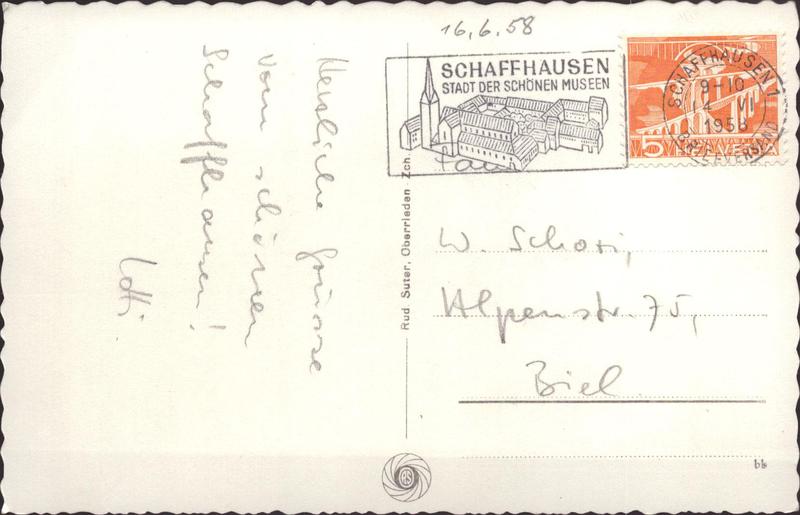 16.6.58
SCHAFFHAUSEN
STADT DER SCHÖNEN MUSEEN
SCHAFFHAUSEN 1
9-10
VI
1958
BRIEFVERSAND
5 HELVETIA
Herzliche Grüsse
vom schönen
Schaffhausen!
Lotti.
Rud Suter, Oberrieden Zch.
Fam.
W. Schori,
Alpenstr. 75,
Biel
RS